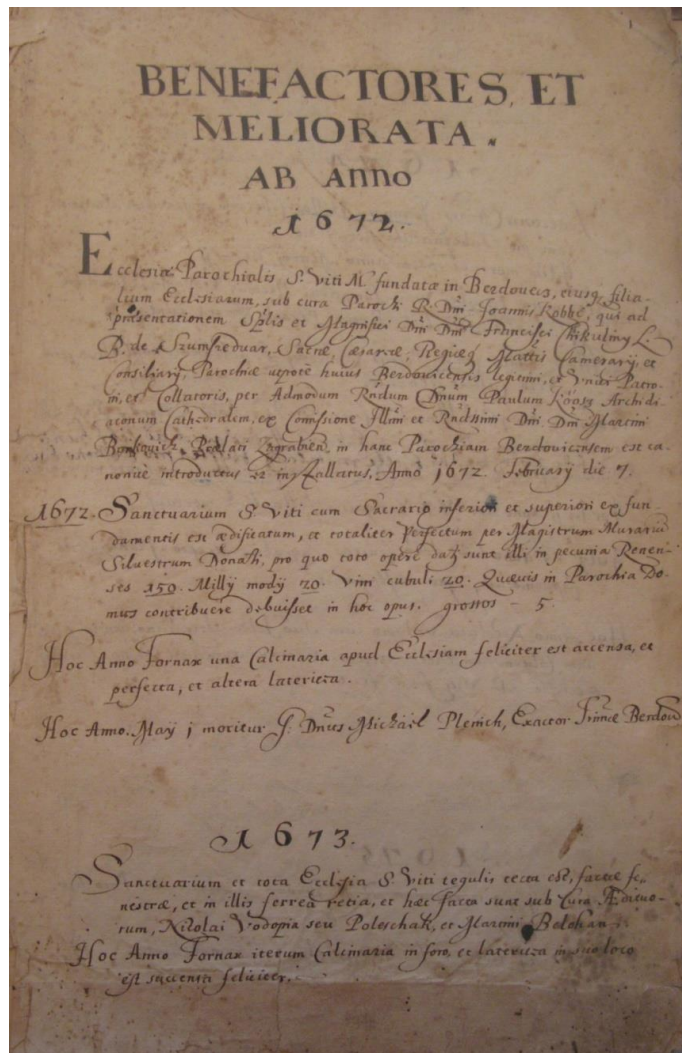 BENEFACTORES, ET
MELIORATA.
AB Anno
1672.
Ecclesiæ Parochialis S. Viti M. fundatæ in Berdoucis, eiusq filia-
lium Ecclesiarum, sub cura Parochi R. Dni Joannis Kobbe, qui ad
præsentationem Splis et Magnifici Dni Dni Francisci Chikuliny L.
B. de Szumszeduar, Sacræ, Cæsareæ, Regiæq Mattis Camerarij, et
Consiliarij, Parochiæ huius Berdovicensis legitimi, et Unici Patro-
ni, et Collatoris, per Admodum Rndum Dnum Paulum Archidi
aconum Cathedralem, ex Comissione Illmi et Rndssimi Dni Dni Martini
in hanc Parochiam Berdovicensem est ca-
nonice introductus et installatus, Anno 1672. February die 7.
1672. Sanctuarium S. Viti cum Sacrario inferiori et superiori ex fun-
damentis est ædificatum, et totaliter perfectum per Magistrum Murariu
Silvestrum Donati, pro quo toto opere dati sunt illi in pecunia Renen-
ses 150. Millij modij 20. Vini cubuli 20. Quævis in Parochia Do-
mus contribuere debuisset in hoc opus. grossos - 5.
Hoc Anno Fornax una Calcinaria apud Ecclesiam feliciter est accensa, et
perfecta, et altera lateritza.
Hoc Anno. Maij 1 moritur G: Dnus Michäel Plemich, Exactor Berdov
1673.
Sanctuarium et tota Ecclesia S. Viti tegulis tecta est, factæ fe-
nestræ, et in illis ferrea retia, et hæc facta sunt sub Cura Ædituo-
rum, Nicolai Vodopia seu Poleschak, et Martini Belohan.
Hoc Anno Fornax iterum Calcinaria in foro, et lateritza in suo loco
est succensa feliciter.